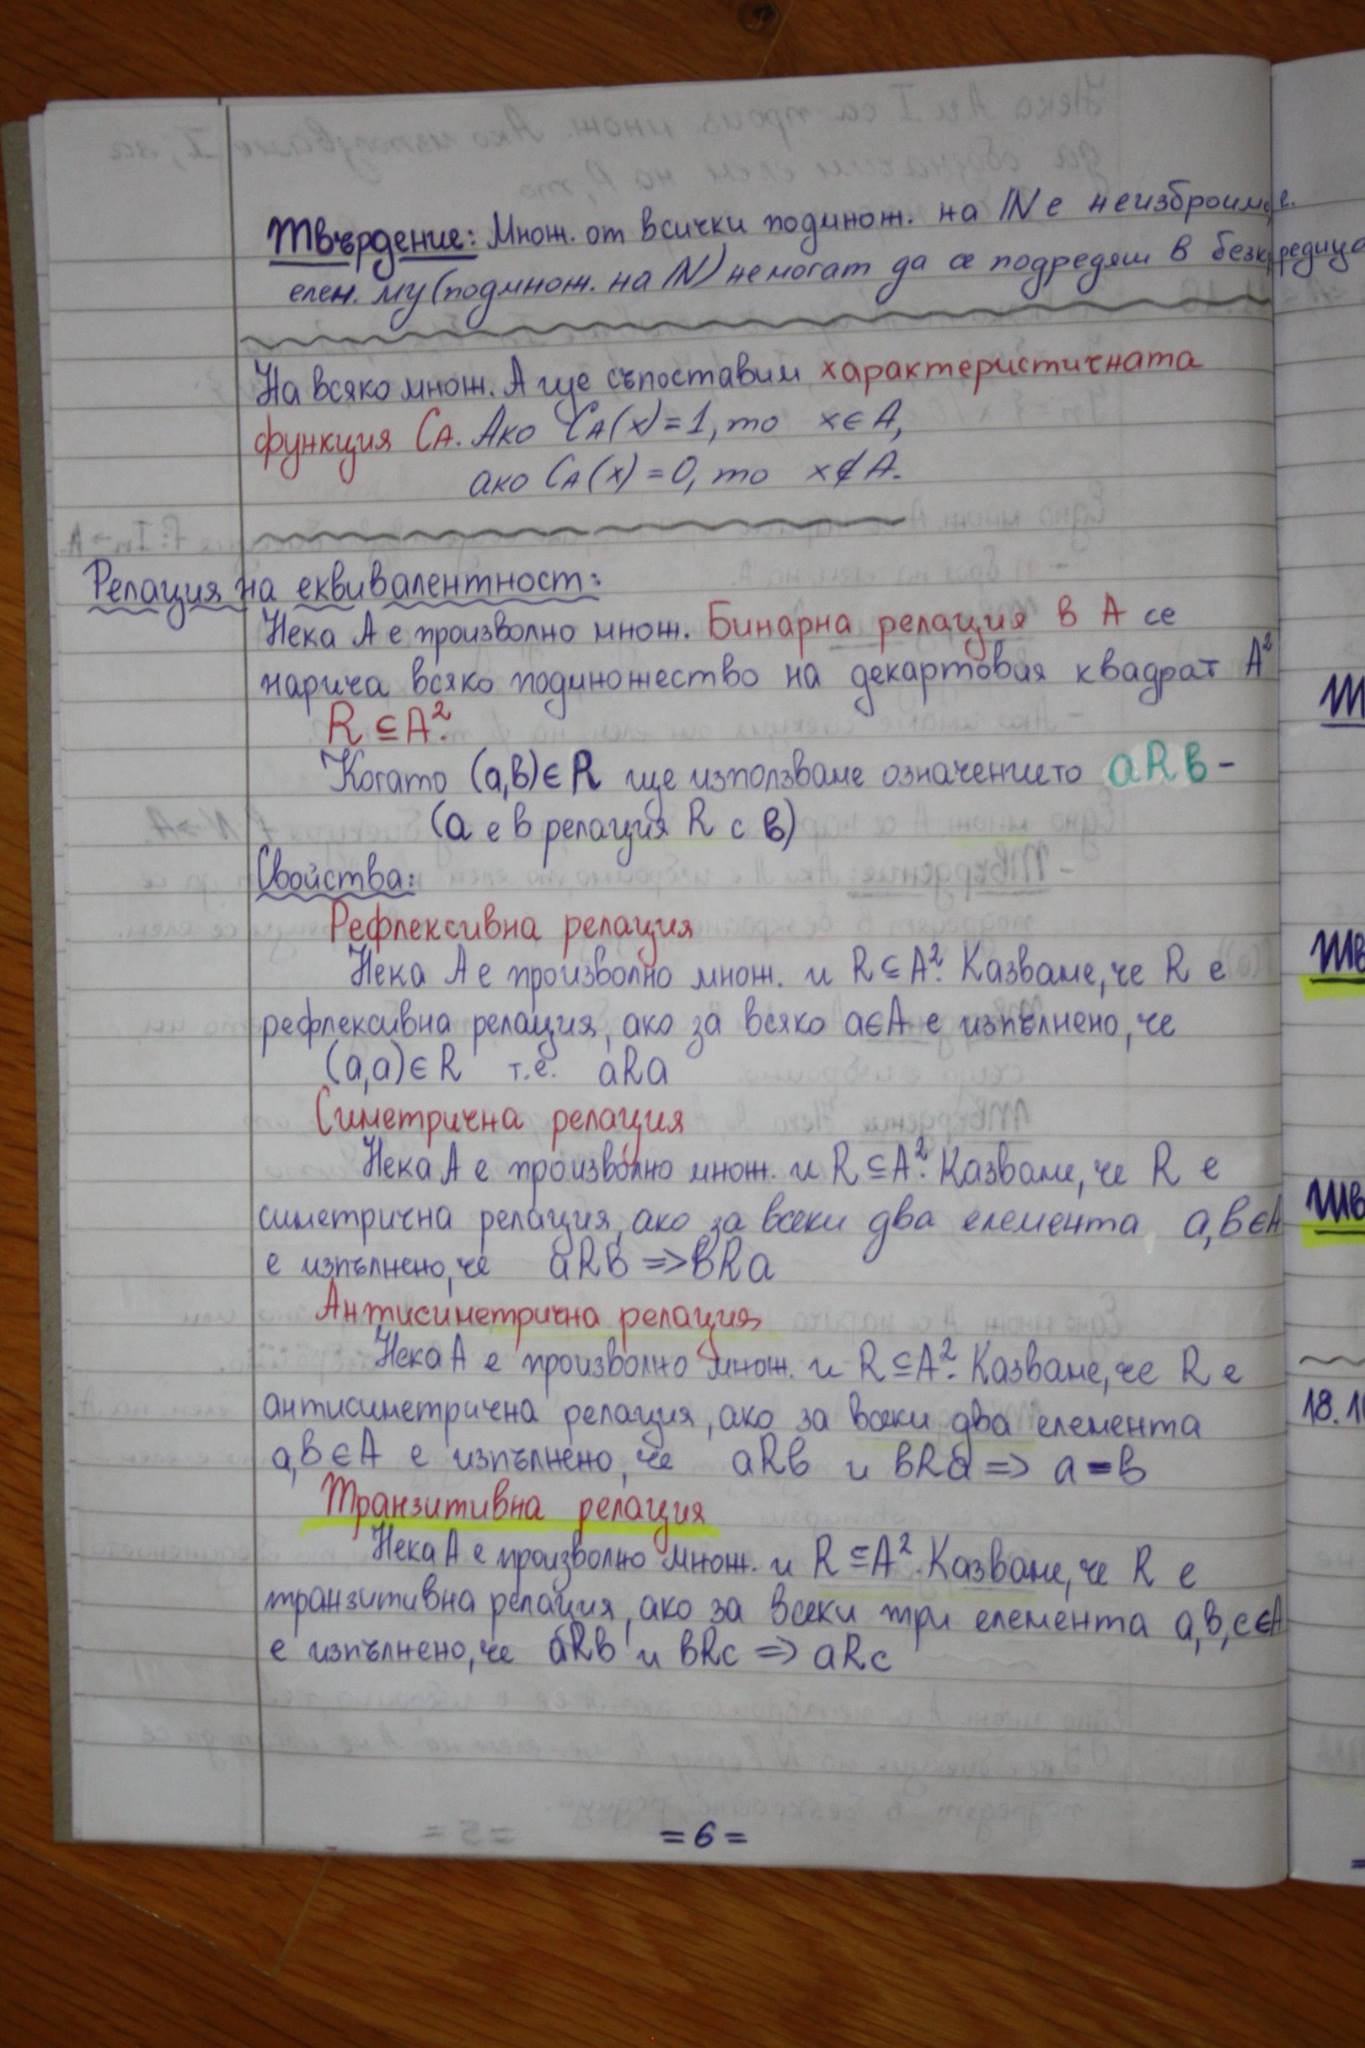 Твърдение: Множ. от всички подмнож. на ℕ е неизброимо, е.
елем. му (подмнож. на ℕ) не могат да се подредят в безкр. редица
На всяко множ. А ще съпоставим характеристичната
функция CA. Ако CA(x)=1, то x∈A,
ако CA(x)=0, то x∉A.
Релация на еквивалентност:
Нека А е произволно множ. Бинарна релация в А се
нарича всяко подмножество на декартовия квадрат A²
R⊆A².
Когато (a,b)∈R ще използваме означението aRb -
(a е в релация R с b)
Свойства:
Рефлексивна релация
Нека А е произволно множ. и R⊆A². Казваме, че R е
рефлексивна релация, ако за всяко a∈A е изпълнено, че
(a,a)∈R т.е. aRa
Симетрична релация
Нека А е произволно множ. и R⊆A². Казваме, че R е
симетрична релация, ако за всеки два елемента a,b∈A
е изпълнено, че aRb => bRa
Антисиметрична релация
Нека А е произволно множ. и R⊆A². Казваме, че R е
антисиметрична релация, ако за всеки два елемента
a,b∈A е изпълнено, че aRb и bRa => a=b
Транзитивна релация
Нека А е произволно множ. и R⊆A². Казваме, че R е
транзитивна релация, ако за всеки три елемента a,b,c∈A
е изпълнено, че aRb и bRc => aRc
=6=